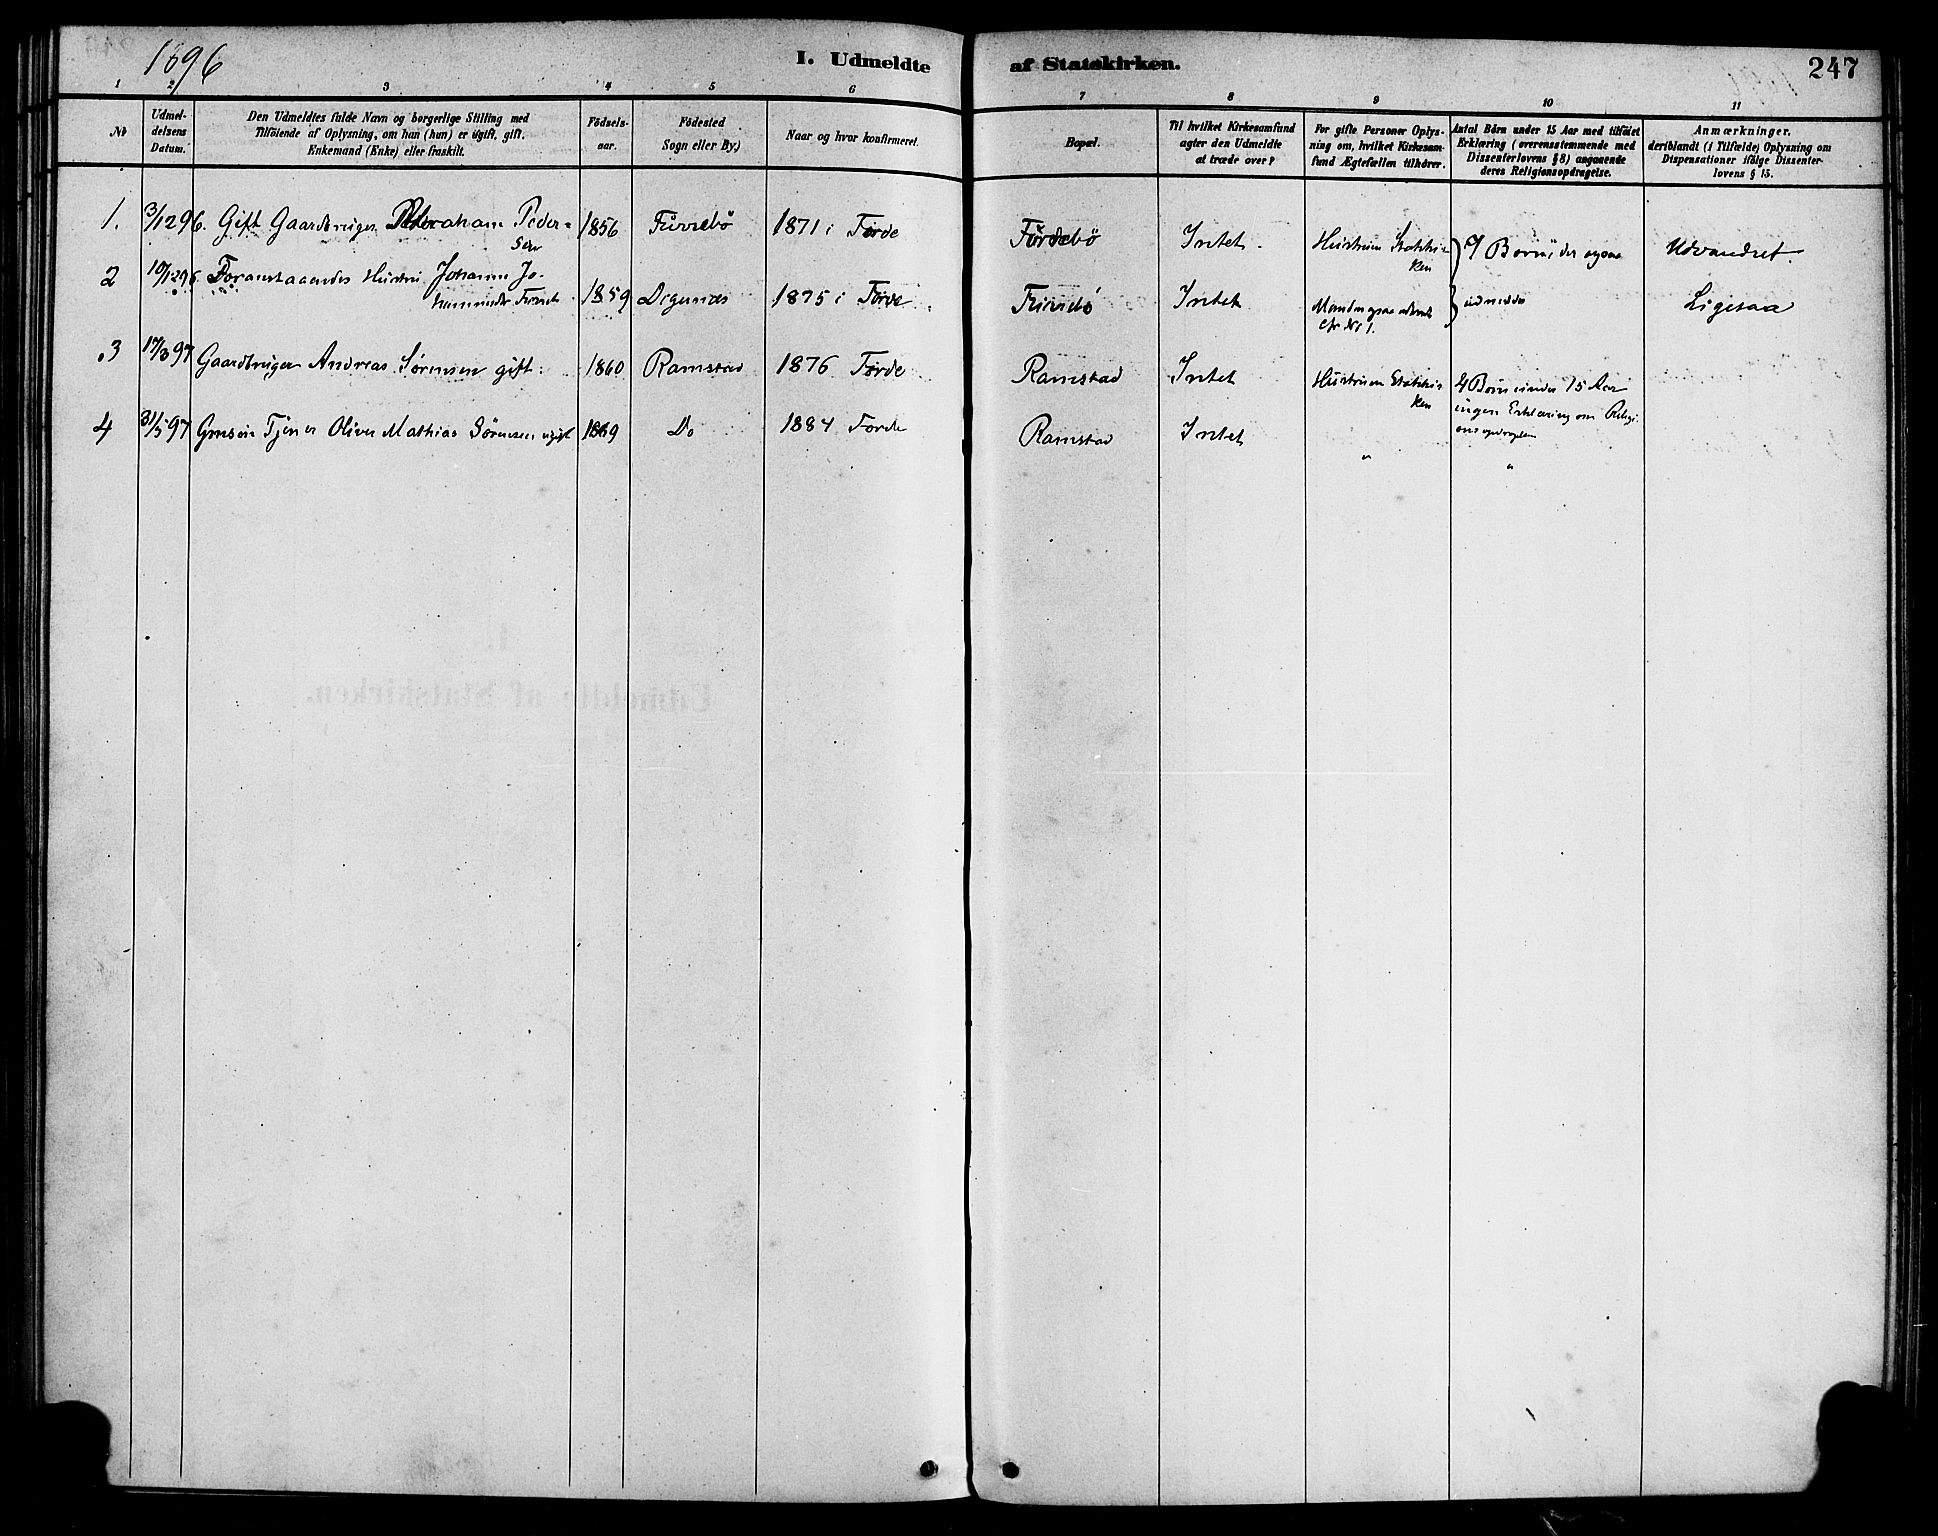 1896
I. Udmeldte af Statskirken.
247
1 2 3 4 5 6 7 8 9 10 11
No
Udmel-
delsens
Datum.
Den Udmeldtes fulde Navn og borgerlige Stilling med
Tilföiende af Oplysning, om han (hun) er ugift, gift,
Enkemand (Enke) eller fraskilt.
Födsels-
aar.
Födested
Sogn eller By.)
Naar og hvor konfirmeret.
Bopæl.
Til hvilket Kirkesamfund
agter den Udmeldte
at træde over?
For gifte Personer Oplys-
ning om, hvilket Kirkesam-
fund Ægtefællen tilhörer.
Antal Börn under 15 Aar med tilföiet
Erklæring (overensstemmende med
Dissenterlovens § 8) angaaende
deres Religionsopdragelse.
Anmærkninger.
deriblandt (i Tilfælde) Oplysning om
Dispensationer ifölge Dissenter-
lovens § 15.
1. 3/12 96. Gift Gaardbruger Abraham Peder- 1856 1871 i Førde Førdebö Intet. Hustruen Statskir-
sen ken
7 Börn, der ogsaa Udvandret.
2 10/12 96. Foranstaaendes Hustru Johanne Jo-
1859 Degernæs 1875 i Førde Intet Manden ogsaa udmeldt udmeldes Ligesaa
cfr No 1.
3 17/3 97 Gaardbruger Andreas Sørensen gift. 1860 Ramstad 1876 Førde Ramstad Intet Hustruen Statskir- 4 Børn under 15 Aar
ken ingen Erklæring om Religi-
onsopdragelsen
4 31/5 97 Tjener Oliver Mathias Sørensen ugift 1869 Do 1884 Førde Ramstad Intet " "